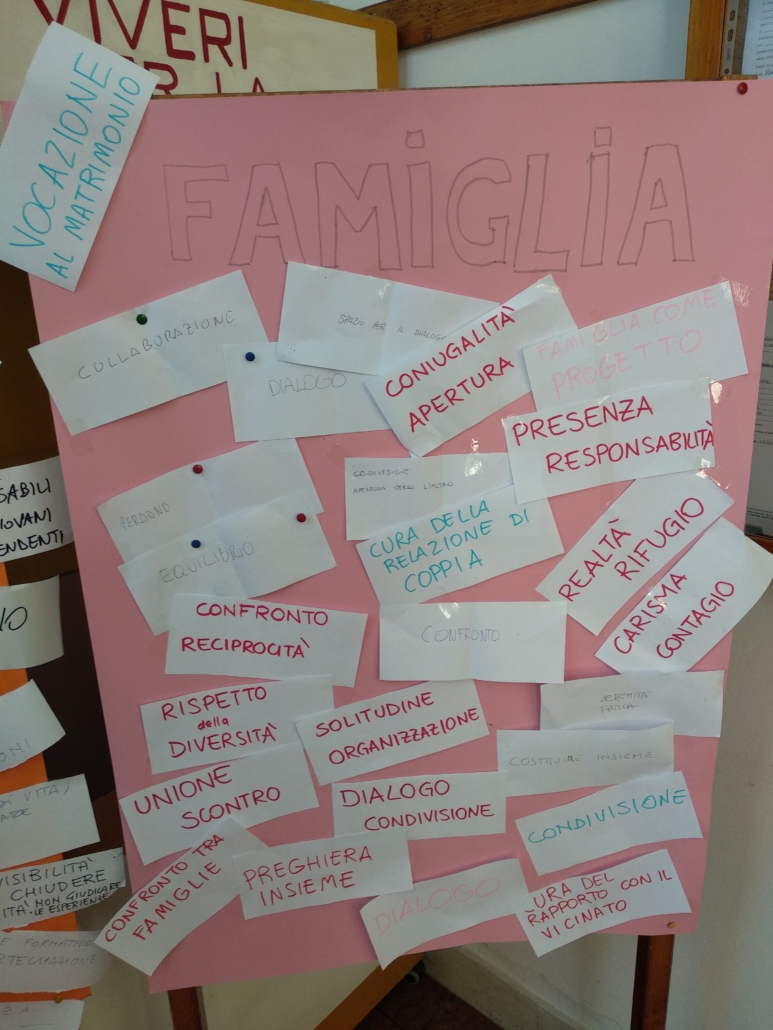 VIVERI
PER LA
VOCAZIONE
AL MATRIMONIO
FAMIGLIA
COLLABORAZIONE
DIALOGO
SPAZIO PER IL DIALOGO
CONIUGALITÀ
APERTURA
FAMIGLIA COME
PROGETTO
PRESENZA
RESPONSABILITÀ
PERDONO
EQUILIBRIO
CONDIVISIONE
APERTURA VERSO L'ALTRO
CURA DELLA
RELAZIONE DI
COPPIA
REALTÀ
RIFUGIO
CARISMA
CONTAGIO
CONFRONTO
RECIPROCITÀ
CONFRONTO
RISPETTO
della
DIVERSITÀ
SOLITUDINE
ORGANIZZAZIONE
SERENITÀ
FATICA
COSTRUIRE INSIEME
UNIONE
SCONTRO
DIALOGO
CONDIVISIONE
CONDIVISIONE
CONFRONTO TRA
FAMIGLIE
PREGHIERA
INSIEME
DIALOGO
CURA DEL
RAPPORTO CON IL
VICINATO
SABILI
IOVANI
ENDENTI
NO
ONI
VITA,
ARE
VISIBILITÀ
CHIUDERE
ITÀ NON GIUDICARE
LE ESPERIENZE
E FORMATIVO
RTECIPAZIONE